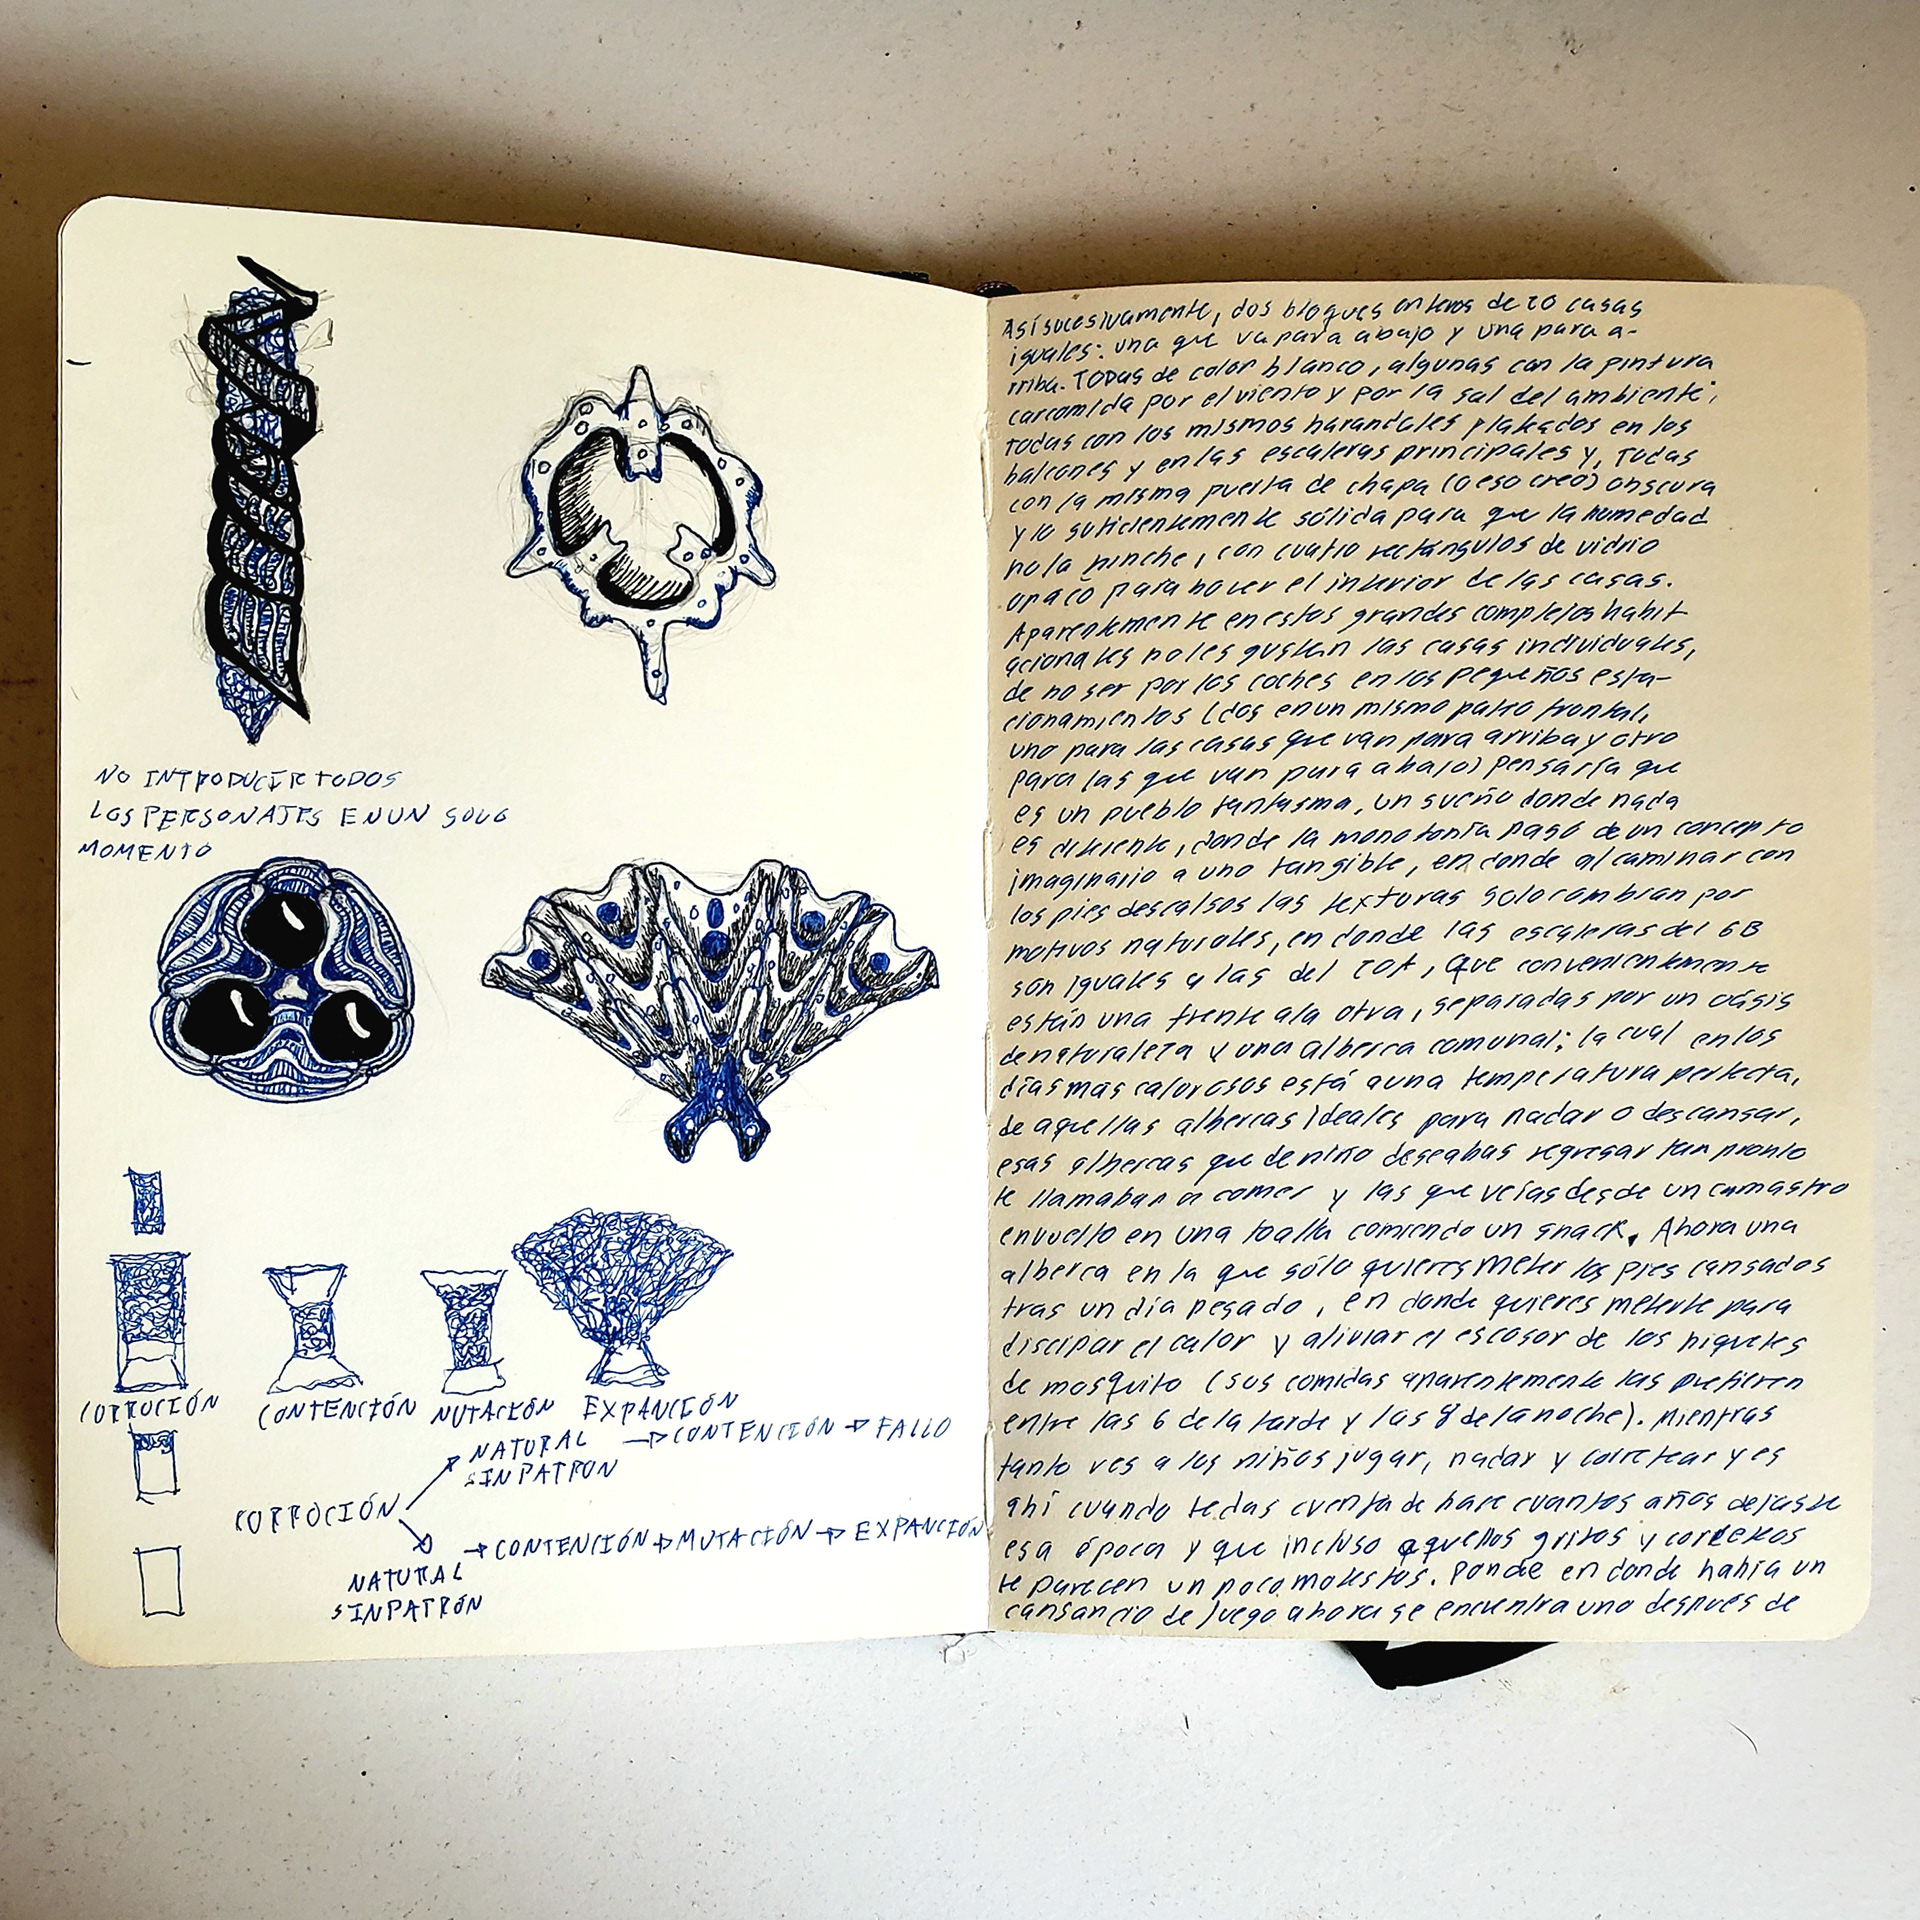 NO INTRODUCIR TODOS
LOS PERSONAJES EN UN SOLO
MOMENTO
CORROCIÓN
CONTENCIÓN
MUTACIÓN
EXPANCIÓN
NATURAL
SIN PATRON
→ CONTENCIÓN → FALLO
CORROCIÓN
→ CONTENCIÓN → MUTACIÓN → EXPANCIÓN
NATURAL
SIN PATRÓN
Así sucesivamente, dos bloques enteros de 20 casas
iguales: una que va para abajo y una para a-
rriba. TODAS de color blanco, algunas con la pintura
carcomida por el viento y por la sal del ambiente;
todas con los mismos barandales plateados en los
balcones y en las escaleras principales y, TODAS
con la misma puerta de chapa (o eso creo) obscura
y lo suficientemente sólida para que la humedad
no la hinche, con cuatro rectángulos de vidrio
opaco para no ver el interior de las casas.
Aparentemente en estos grandes complejos habit
acionales no les gustan las casas individuales,
de no ser por los coches en los pequeños esta-
cionamientos (dos en un mismo patio frontal,
uno para las casas que van para arriba y otro
para las que van para abajo) pensaría que
es un pueblo fantasma, un sueño donde nada
es diferente, donde la monotonía pasó de un concepto
imaginario a uno tangible, en donde al caminar con
los pies descalsos las texturas solo cambian por
motivos naturales, en donde las escaleras del 6B
son iguales a las del 20A, que convenientemente
están una frente a la otra, separadas por un oásis
de naturaleza y una alberca comunal; la cual en los
días mas calurosos está a una temperatura perfecta,
de aquellas albercas ideales para nadar o descansar,
esas albercas que de niño deseabas regresar tan pronto
te llamaban a comer y las que veías desde un camastro
envuelto en una toalla comiendo un snack. Ahora una
alberca en la que sólo quieres meter los pies cansados
tras un día pesado, en donde quieres meterte para
discipar el calor y aliviar el escosor de los piquetes
de mosquito (sus comidas aparentemente las prefieren
entre las 6 de la tarde y las 8 de la noche). Mientras
tanto ves a los niños jugar, nadar y corretear y es
ahí cuando te das cuenta de hace cuantos años dejaste
esa época y que incluso aquellos gritos y correteos
te parecen un poco molestos. Donde en donde había un
cansancio de juego ahora se encuentra uno después de